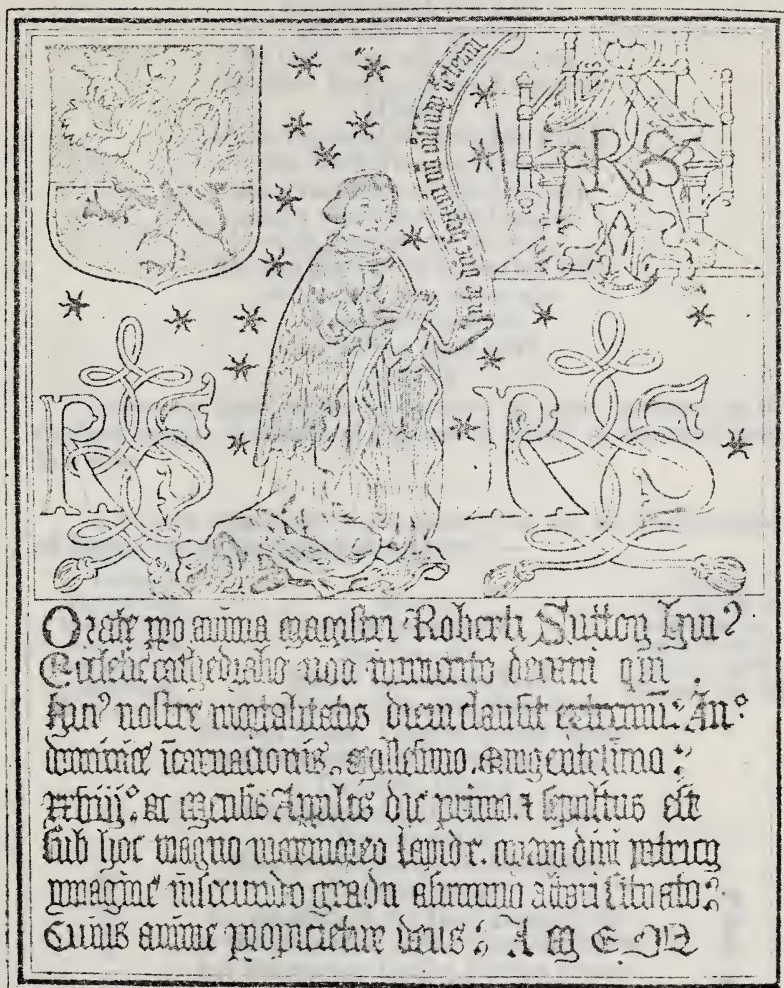 RS
RS
RS
Orate pro anima magistri Roberti Sutton huiꝰ
Ecclesie cathedralis non immerito decani qui
huiꝰ nostre mortalitatis diem clausit extremū: An°
dominice īcarnacionis. Millesimo. Quingentesimo:
xxviij°. ac mensis Aprilis die primo. ⁊ sepultus est
sub hoc magno marmoreo lapide. coram diui patricij
ymagine in secundo gradu asummo altari situato:
Cuius anime propicietur deus: AMEN